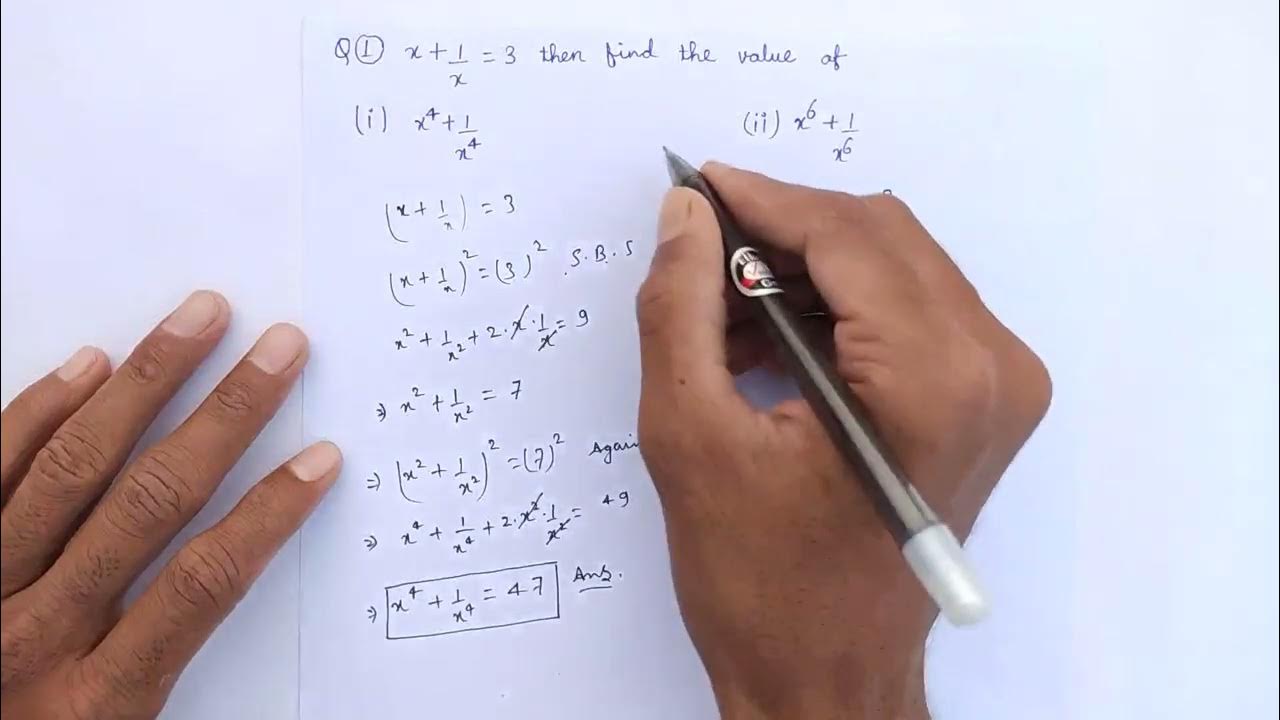 Q① x + 1/x = 3 then find the value of
(i) x⁴ + 1/x⁴
(ii) x⁶ + 1/x⁶
(x + 1/x) = 3
(x + 1/x)² = (3)² S.B.S
x² + 1/x² + 2·x·1/x = 9
⇒ x² + 1/x² = 7
⇒ (x² + 1/x²)² = (7)²
⇒ x⁴ + 1/x⁴ + 2·x²·1/x² = 49
⇒ x⁴ + 1/x⁴ = 47 Ans.